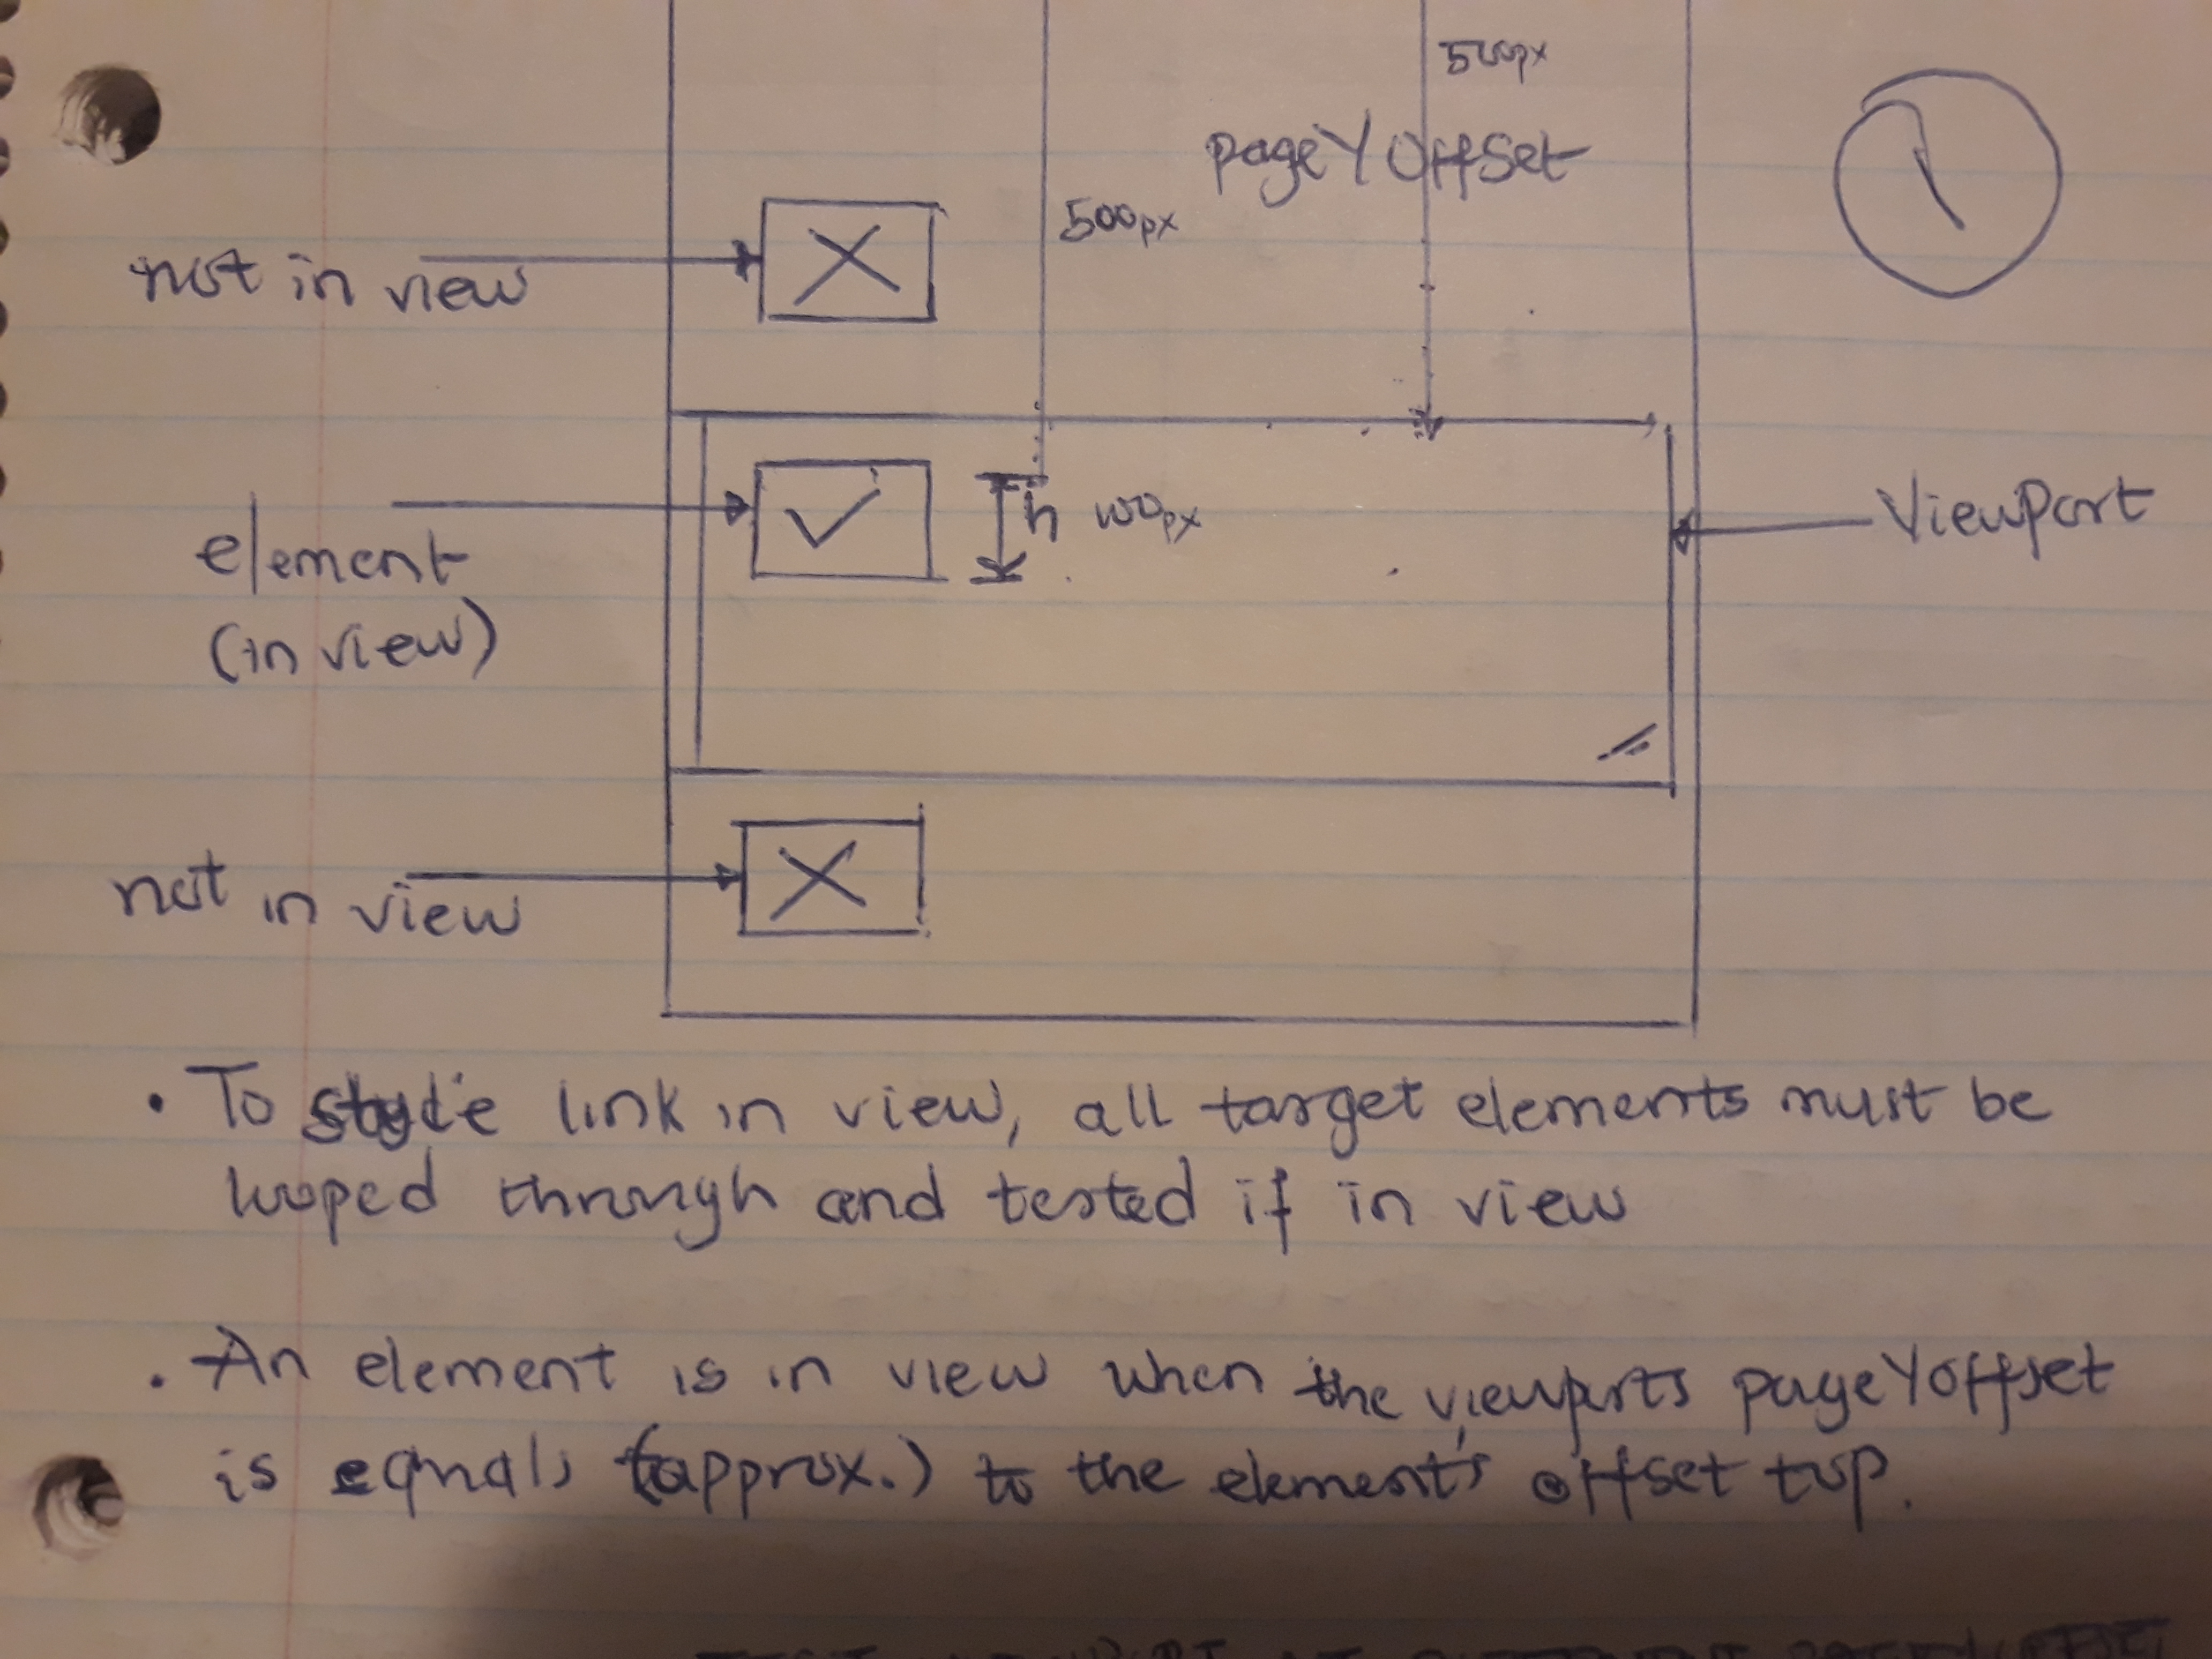 500px
pageYOffset
500px
not in view
h 100px
ViewPort
element
(in view)
not in view
. To style link in view, all target elements must be
looped through and tested if in view
. An element is in view when the viewports pageYoffset
is equals (approx.) to the element's offset top.